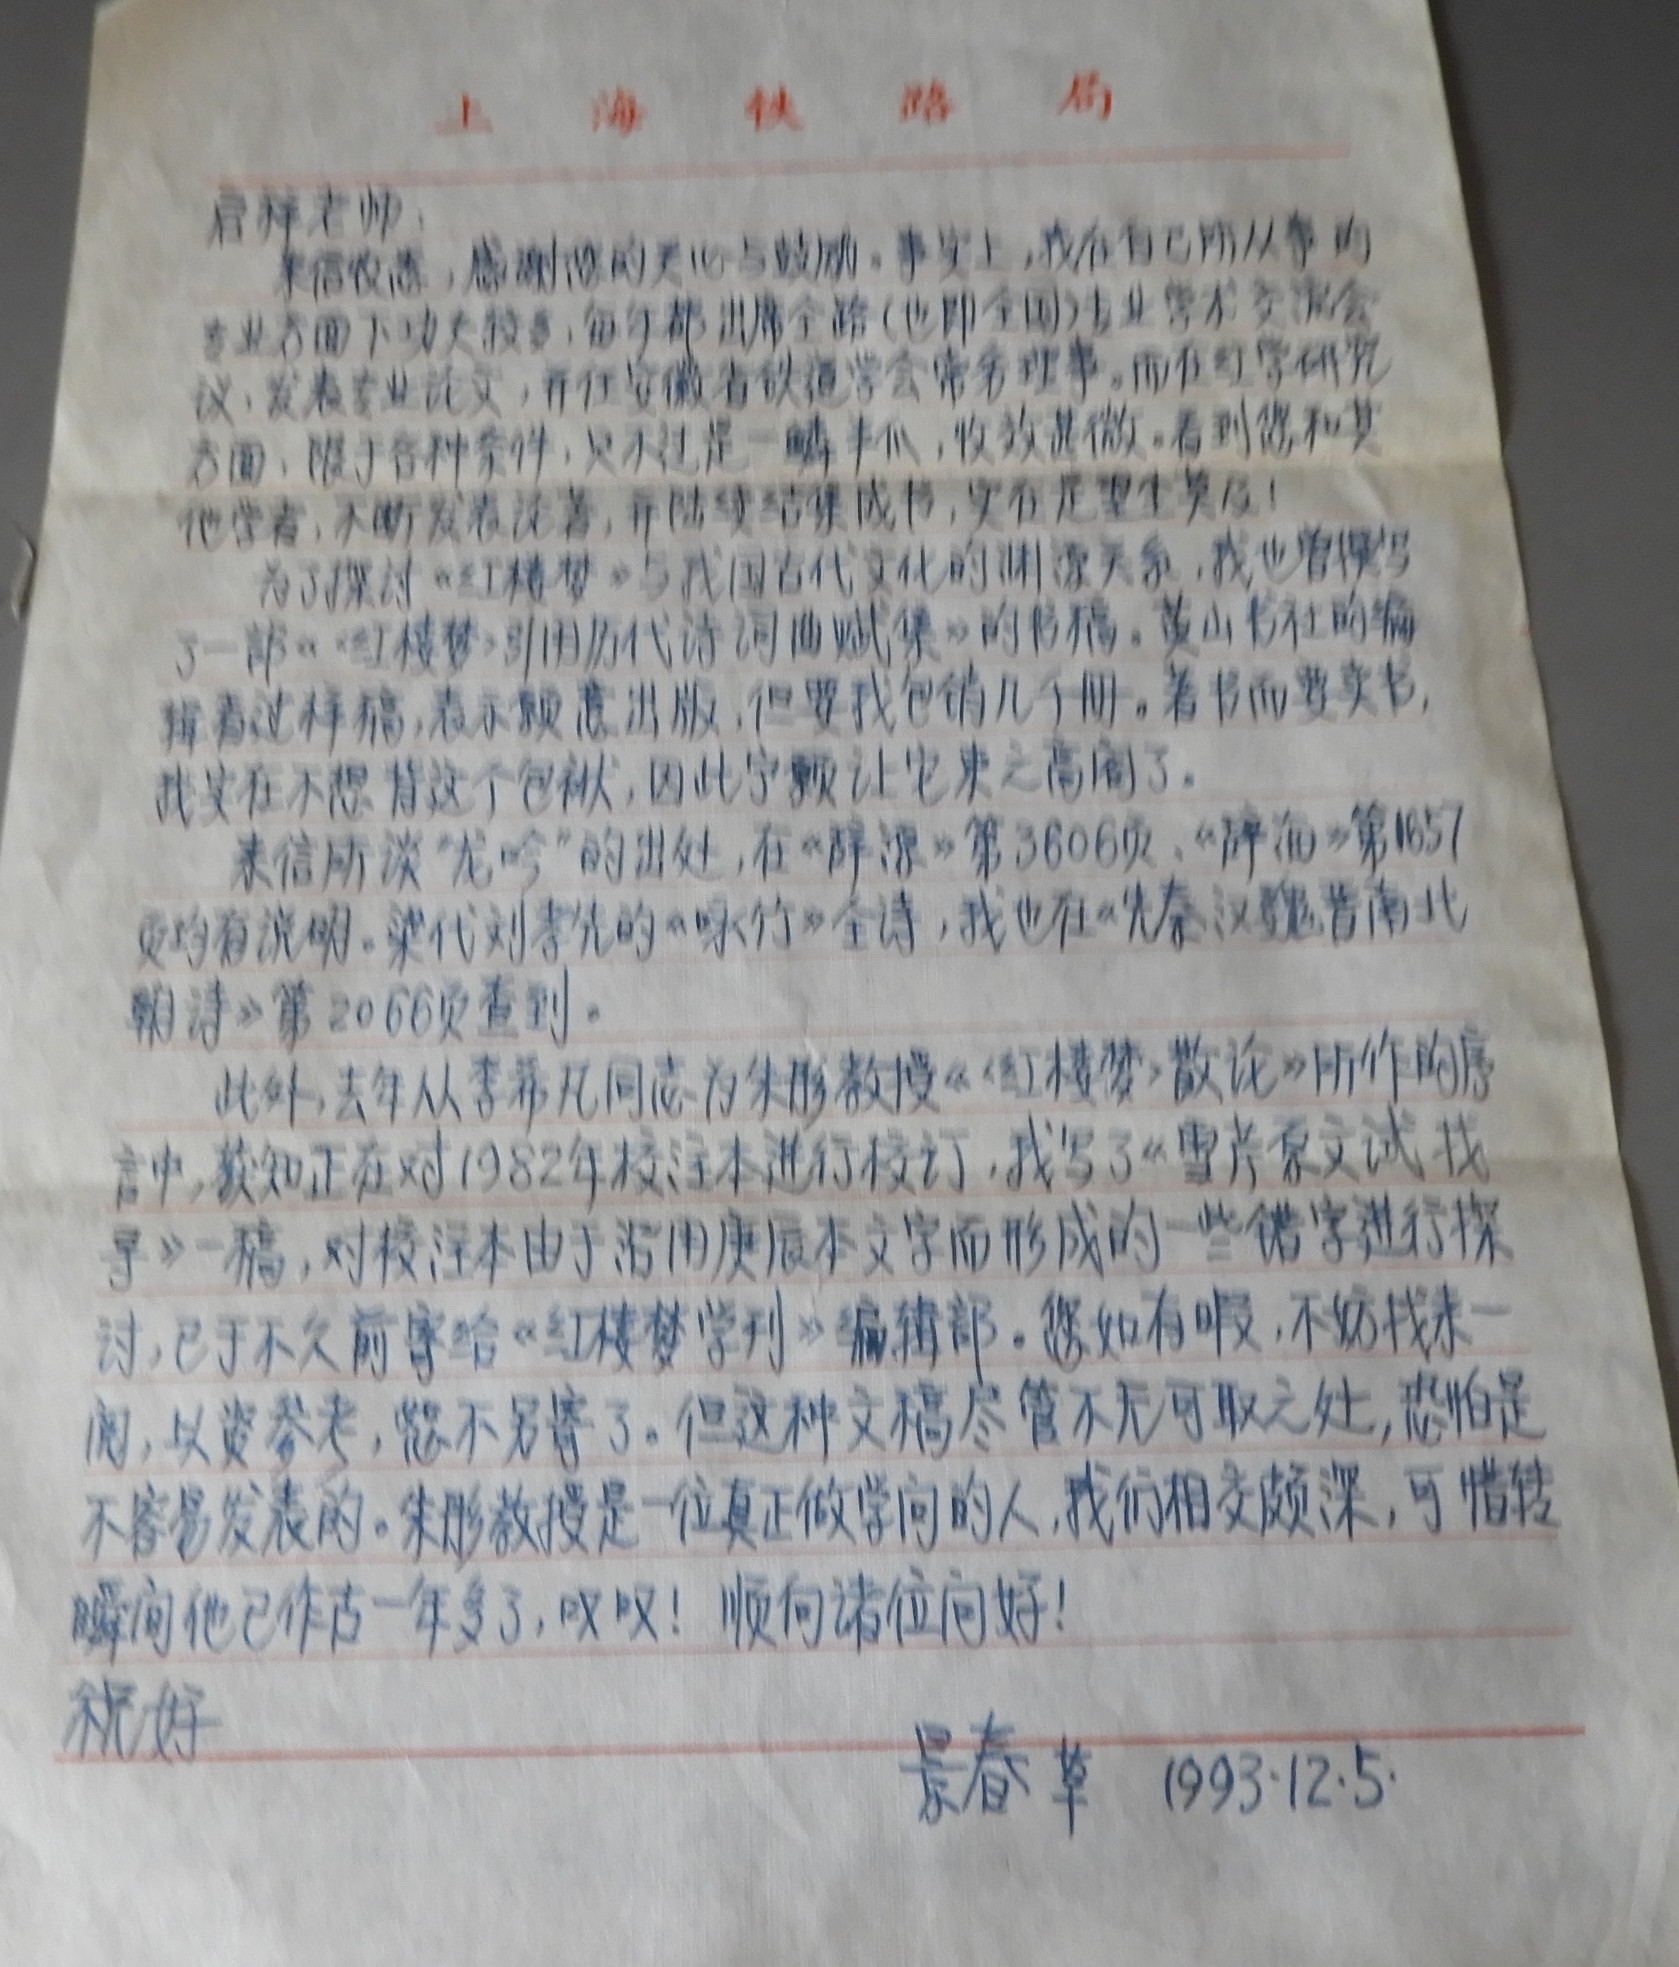 上海铁路局
启祥老师：
来信收悉，感谢您的关心与鼓励。事实上，我在自己所从事的
专业方面下功夫较多，每年都出席全路（也即全国）专业学术交流会
议，发表专业论文，并任安徽省铁道学会常务理事。而在红学研究
方面，限于各种条件，只不过是一鳞半爪，收效甚微。看到您和其
他学者，不断发表论著，并陆续结集成书，实在是望尘莫及！
为了探讨《红楼梦》与我国古代文化的渊源关系，我也曾撰写
了一部《〈红楼梦〉引用历代诗词曲赋集》的书稿。黄山书社的编
辑看过样稿，表示愿意出版，但要我包销几千册。著书而要卖书，
我实在不想背这个包袱，因此宁愿让它束之高阁了。
来信所谈“龙吟”的出处，在《辞源》第3606页、《辞海》第1657
页均有说明。梁代刘孝先的《咏竹》全诗，我也在《先秦汉魏晋南北
朝诗》第2066页查到。
此外，去年从李希凡同志为朱彤教授《〈红楼梦〉散论》所作的序
言中，获知正在对1982年校注本进行校订，我写了《雪芹原文试找
寻》一稿，对校注本由于沿用庚辰本文字而形成的一些错字进行探
讨，已于不久前寄给《红楼梦学刊》编辑部。您如有暇，不妨找来一
阅，以资参考，恕不另寄了。但这种文稿尽管不无可取之处，恐怕是
不容易发表的。朱彤教授是一位真正做学问的人，我们相交颇深，可惜转
瞬间他已作古一年多了，叹叹！顺向诸位问好！
祝好
景春草 1993.12.5.